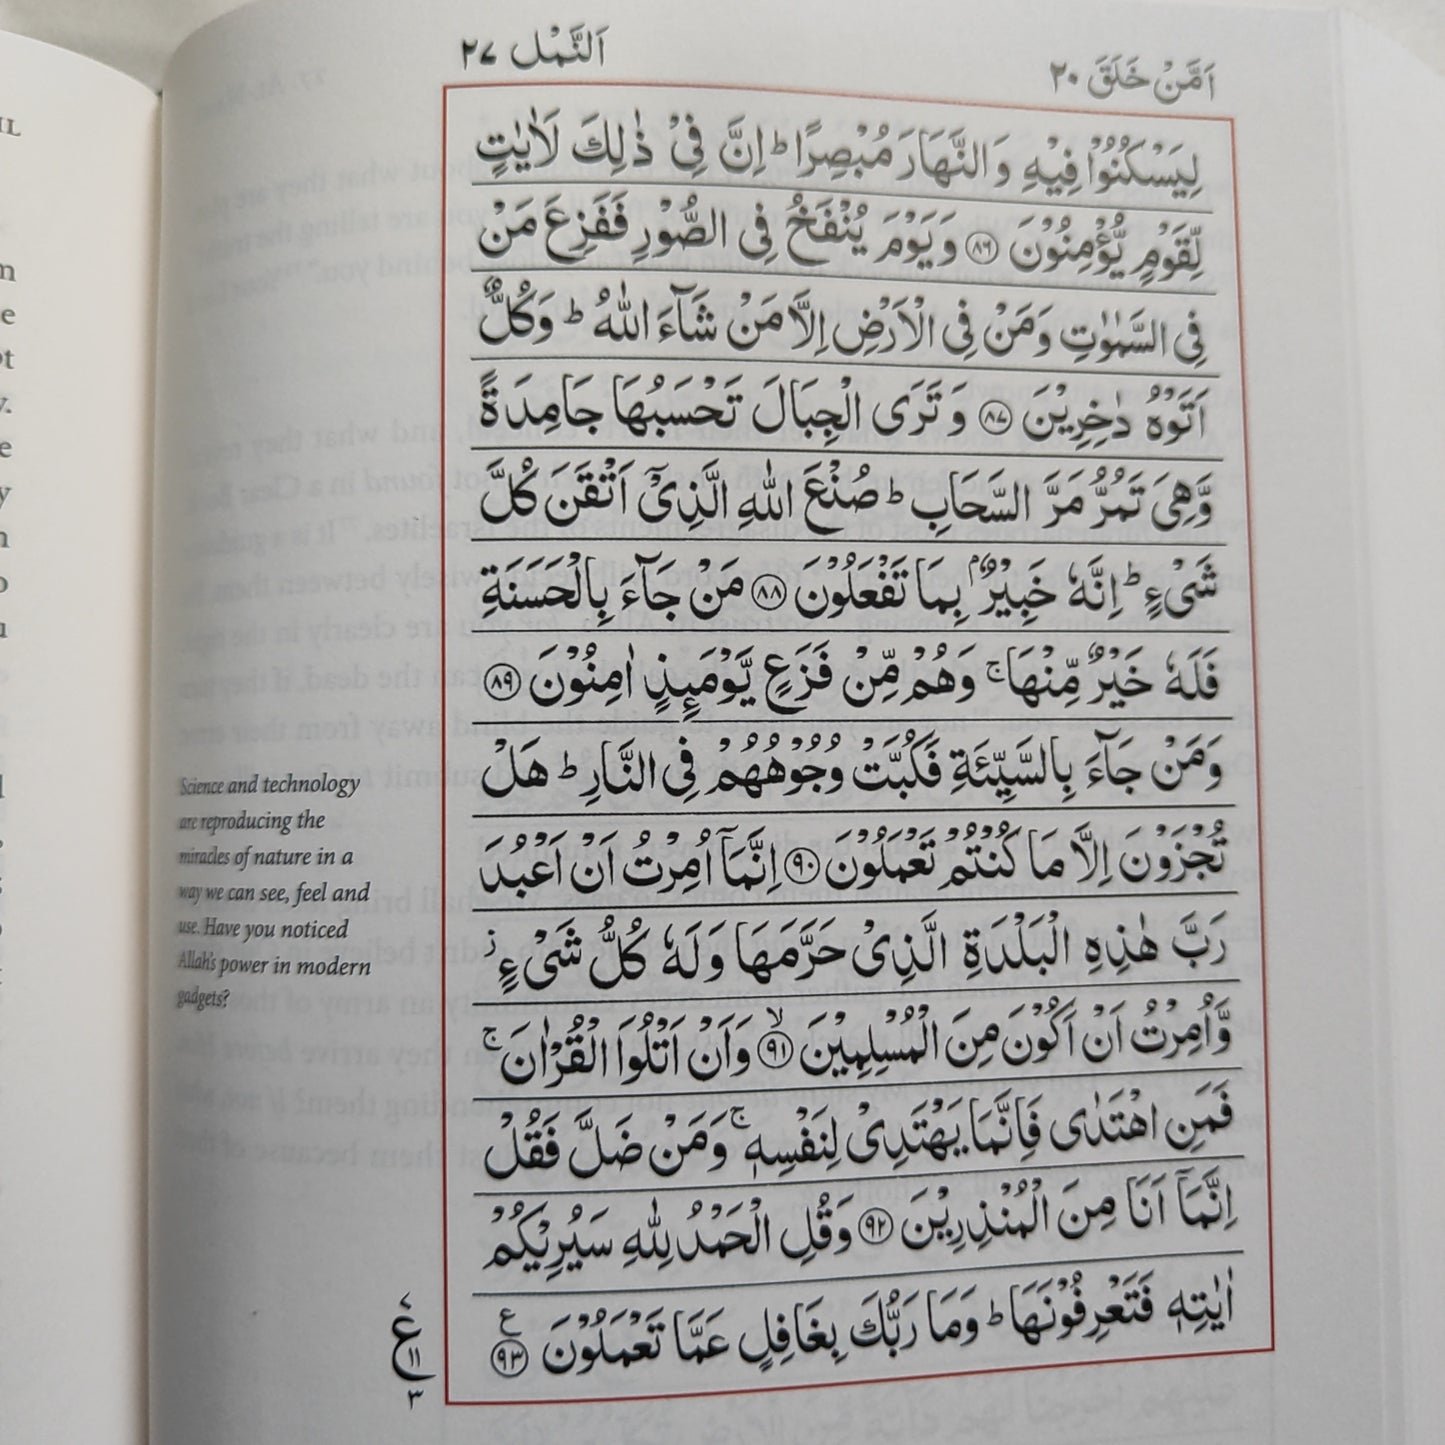 اَمَّنْ خَلَقَ ٢٠
اَلنَّمْل ٢٧
لِيَسْكُنُوْا فِيْهِ وَالنَّهَارَ مُبْصِرًا ؕ اِنَّ فِيْ ذٰلِكَ لَاٰيٰتٍ
لِّقَوْمٍ يُّؤْمِنُوْنَ ﴿٨٦﴾ وَيَوْمَ يُنْفَخُ فِى الصُّوْرِ فَفَزِعَ مَنْ
فِى السَّمٰوٰتِ وَمَنْ فِى الْاَرْضِ اِلَّا مَنْ شَآءَ اللّٰهُ ؕ وَكُلٌّ
اَتَوْهُ دٰخِرِيْنَ ﴿٨٧﴾ وَتَرَى الْجِبَالَ تَحْسَبُهَا جَامِدَةً
وَّهِىَ تَمُرُّ مَرَّ السَّحَابِ ؕ صُنْعَ اللّٰهِ الَّذِىْٓ اَتْقَنَ كُلَّ
شَىْءٍ ؕ اِنَّهٗ خَبِيْرٌۢ بِمَا تَفْعَلُوْنَ ﴿٨٨﴾ مَنْ جَآءَ بِالْحَسَنَةِ
فَلَهٗ خَيْرٌ مِّنْهَا ۚ وَهُمْ مِّنْ فَزَعٍ يَّوْمَئِذٍ اٰمِنُوْنَ ﴿٨٩﴾
وَمَنْ جَآءَ بِالسَّيِّئَةِ فَكُبَّتْ وُجُوْهُهُمْ فِى النَّارِ ؕ هَلْ
تُجْزَوْنَ اِلَّا مَا كُنْتُمْ تَعْمَلُوْنَ ﴿٩٠﴾ اِنَّمَآ اُمِرْتُ اَنْ اَعْبُدَ
رَبَّ هٰذِهِ الْبَلْدَةِ الَّذِىْ حَرَّمَهَا وَلَهٗ كُلُّ شَىْءٍ ز
وَّاُمِرْتُ اَنْ اَكُوْنَ مِنَ الْمُسْلِمِيْنَ ۙ﴿٩١﴾ وَاَنْ اَتْلُوَا الْقُرْاٰنَ ۚ
فَمَنِ اهْتَدٰى فَاِنَّمَا يَهْتَدِىْ لِنَفْسِهٖ ۚ وَمَنْ ضَلَّ فَقُلْ
اِنَّمَآ اَنَا مِنَ الْمُنْذِرِيْنَ ﴿٩٢﴾ وَقُلِ الْحَمْدُ لِلّٰهِ سَيُرِيْكُمْ
اٰيٰتِهٖ فَتَعْرِفُوْنَهَا ؕ وَمَا رَبُّكَ بِغَافِلٍ عَمَّا تَعْمَلُوْنَ ﴿٩٣﴾ ع
Science and technology
are reproducing the
miracles of nature in a
way we can see, feel and
use. Have you noticed
Allah's power in modern
gadgets?
ع
١١
٣